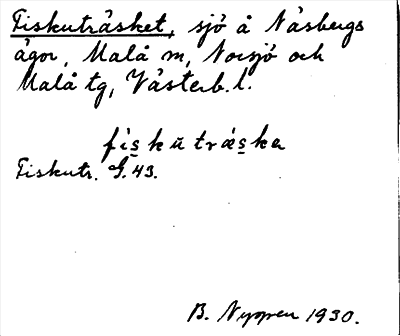 Fiskuträsket, sjö å Näsbergs
ägor, Malå m, Norsjö och
Malå tg, Västerb. l.
fiskŭträska
Fiskutr. G. 43.
B. Nygren 1930.